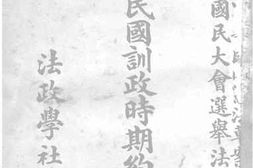 國民大會選舉法
民國訓政時期約
法政學社